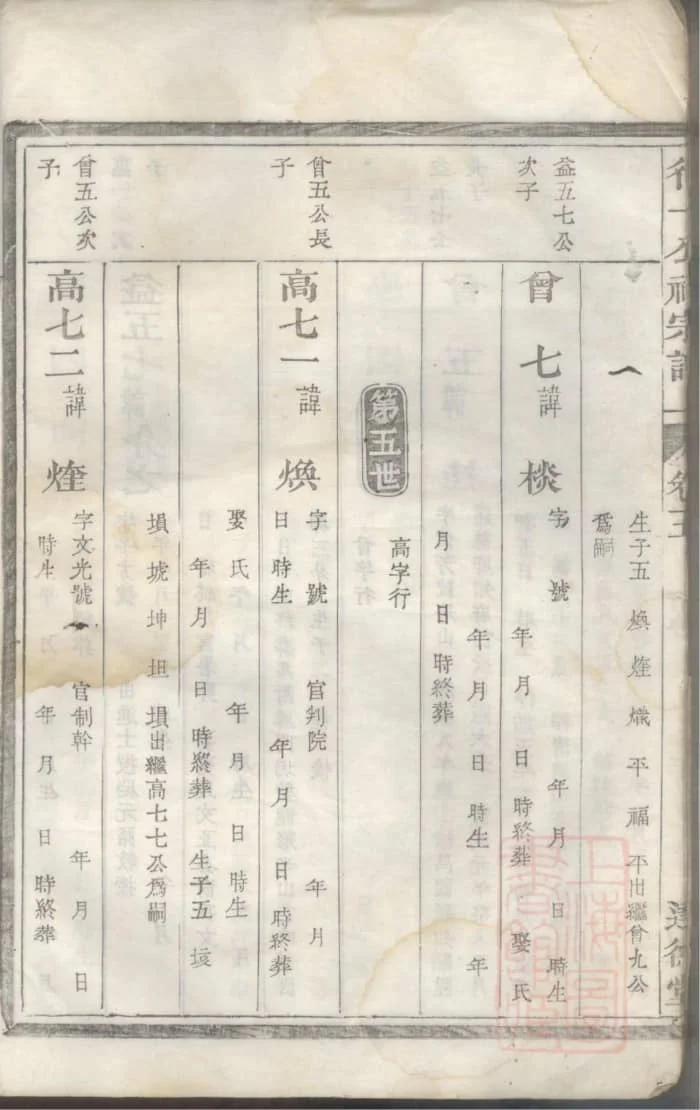 生子五 煥 煃 熾 平 福 平出繼曾九公
爲嗣
益五七公
次子
曾七諱棪
字 號 年 月 日 時生
年 月 日 時終葬 娶 氏
年 月 日 時生 年
月 日 時終葬
第五世
高字行
曾五公長
子
高七一諱煥
字 號 官判院 年 月
日 時生 年 月 日 時終葬
娶 氏 年 月 日 時生
年 月 日 時終葬 生子五 垓
塤 垙 坤 坦 塤出繼高七七公爲嗣
曾五公次
子
高七二諱煃
字文光號 官制幹 年 月 日
時生 年 月 日 時終葬